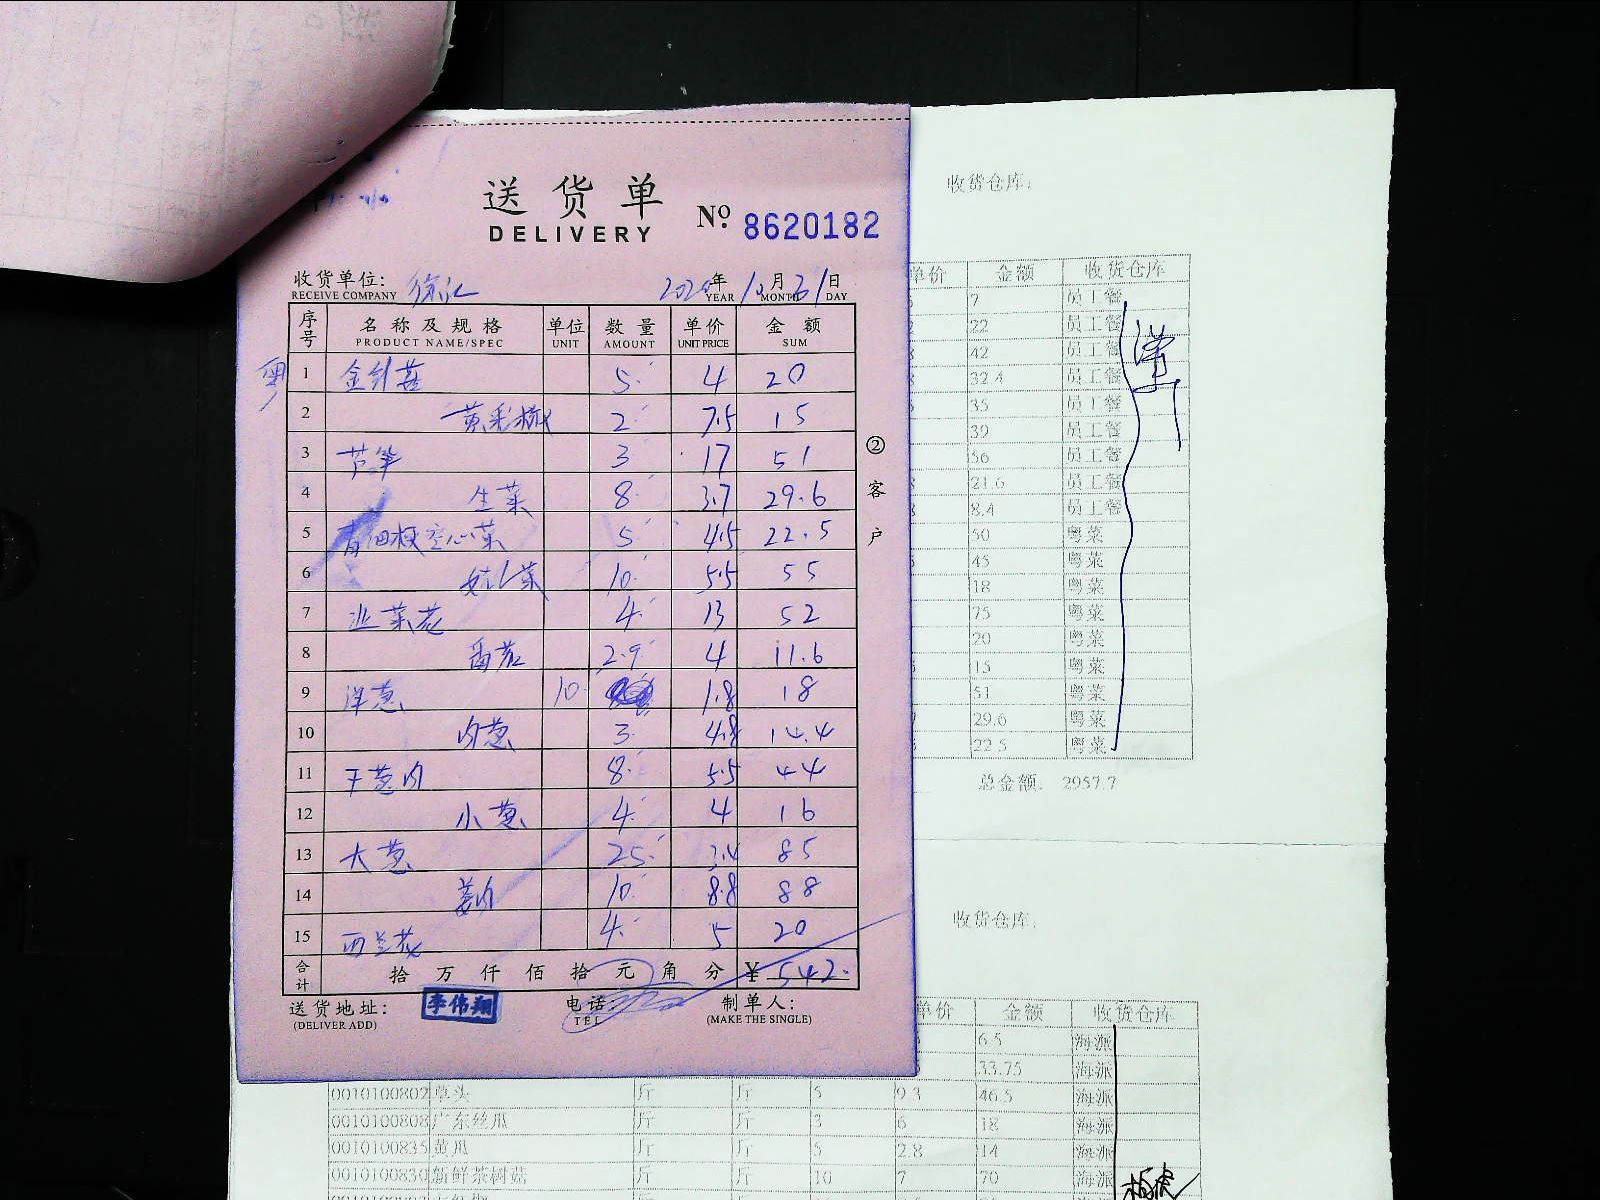 送货单
DELIVERY
No. 8620182
收货单位: 徐汇 2020年10月31日
RECEIVE COMPANY YEAR MONTH DAY
序号 名称及规格 单位 数量 单价 金额
PRODUCT NAME/SPEC UNIT AMOUNT UNIT PRICE SUM
粤
1 金针菇 5 4 20
2 黄彩椒 2 7.5 15
3 芦笋 3 17 51
4 生菜 8 3.7 29.6
5 青细梗空心菜 5 4.5 22.5
6 菜 10 5.5 55
7 韭菜花 4 13 52
8 番茄 2.9 4 11.6
9 洋葱 10 1.8 18
10 肉葱 3 4.8 14.4
11 干葱肉 8 5.5 44
12 小葱 4 4 16
13 大葱 25 3.4 85
14 姜肉 10 8.8 88
15 西兰花 4 5 20
合计 拾万仟佰拾元角分 ¥542.
送货地址: 李伟翔 电话: 制单人:
(DELIVER ADD) TEL (MAKE THE SINGLE)
②客户
收货仓库:
单价 金额 收货仓库
7 员工餐
22 员工餐
42 员工餐
32.4 员工餐
35 员工餐
39 员工餐
56 员工餐
21.6 员工餐
8.4 员工餐
50 粤菜
45 粤菜
18 粤菜
75 粤菜
20 粤菜
15 粤菜
51 粤菜
29.6 粤菜
22.5 粤菜
总金额: 2957.7
收货仓库:
单价 金额 收货仓库
6.5 海派
33.75 海派
0010100802 草头 斤 斤 5 9.3 46.5 海派
0010100808 广东丝瓜 斤 斤 3 6 18 海派
0010100835 黄瓜 斤 斤 5 2.8 14 海派
0010100830 新鲜茶树菇 斤 斤 10 7 70 海派